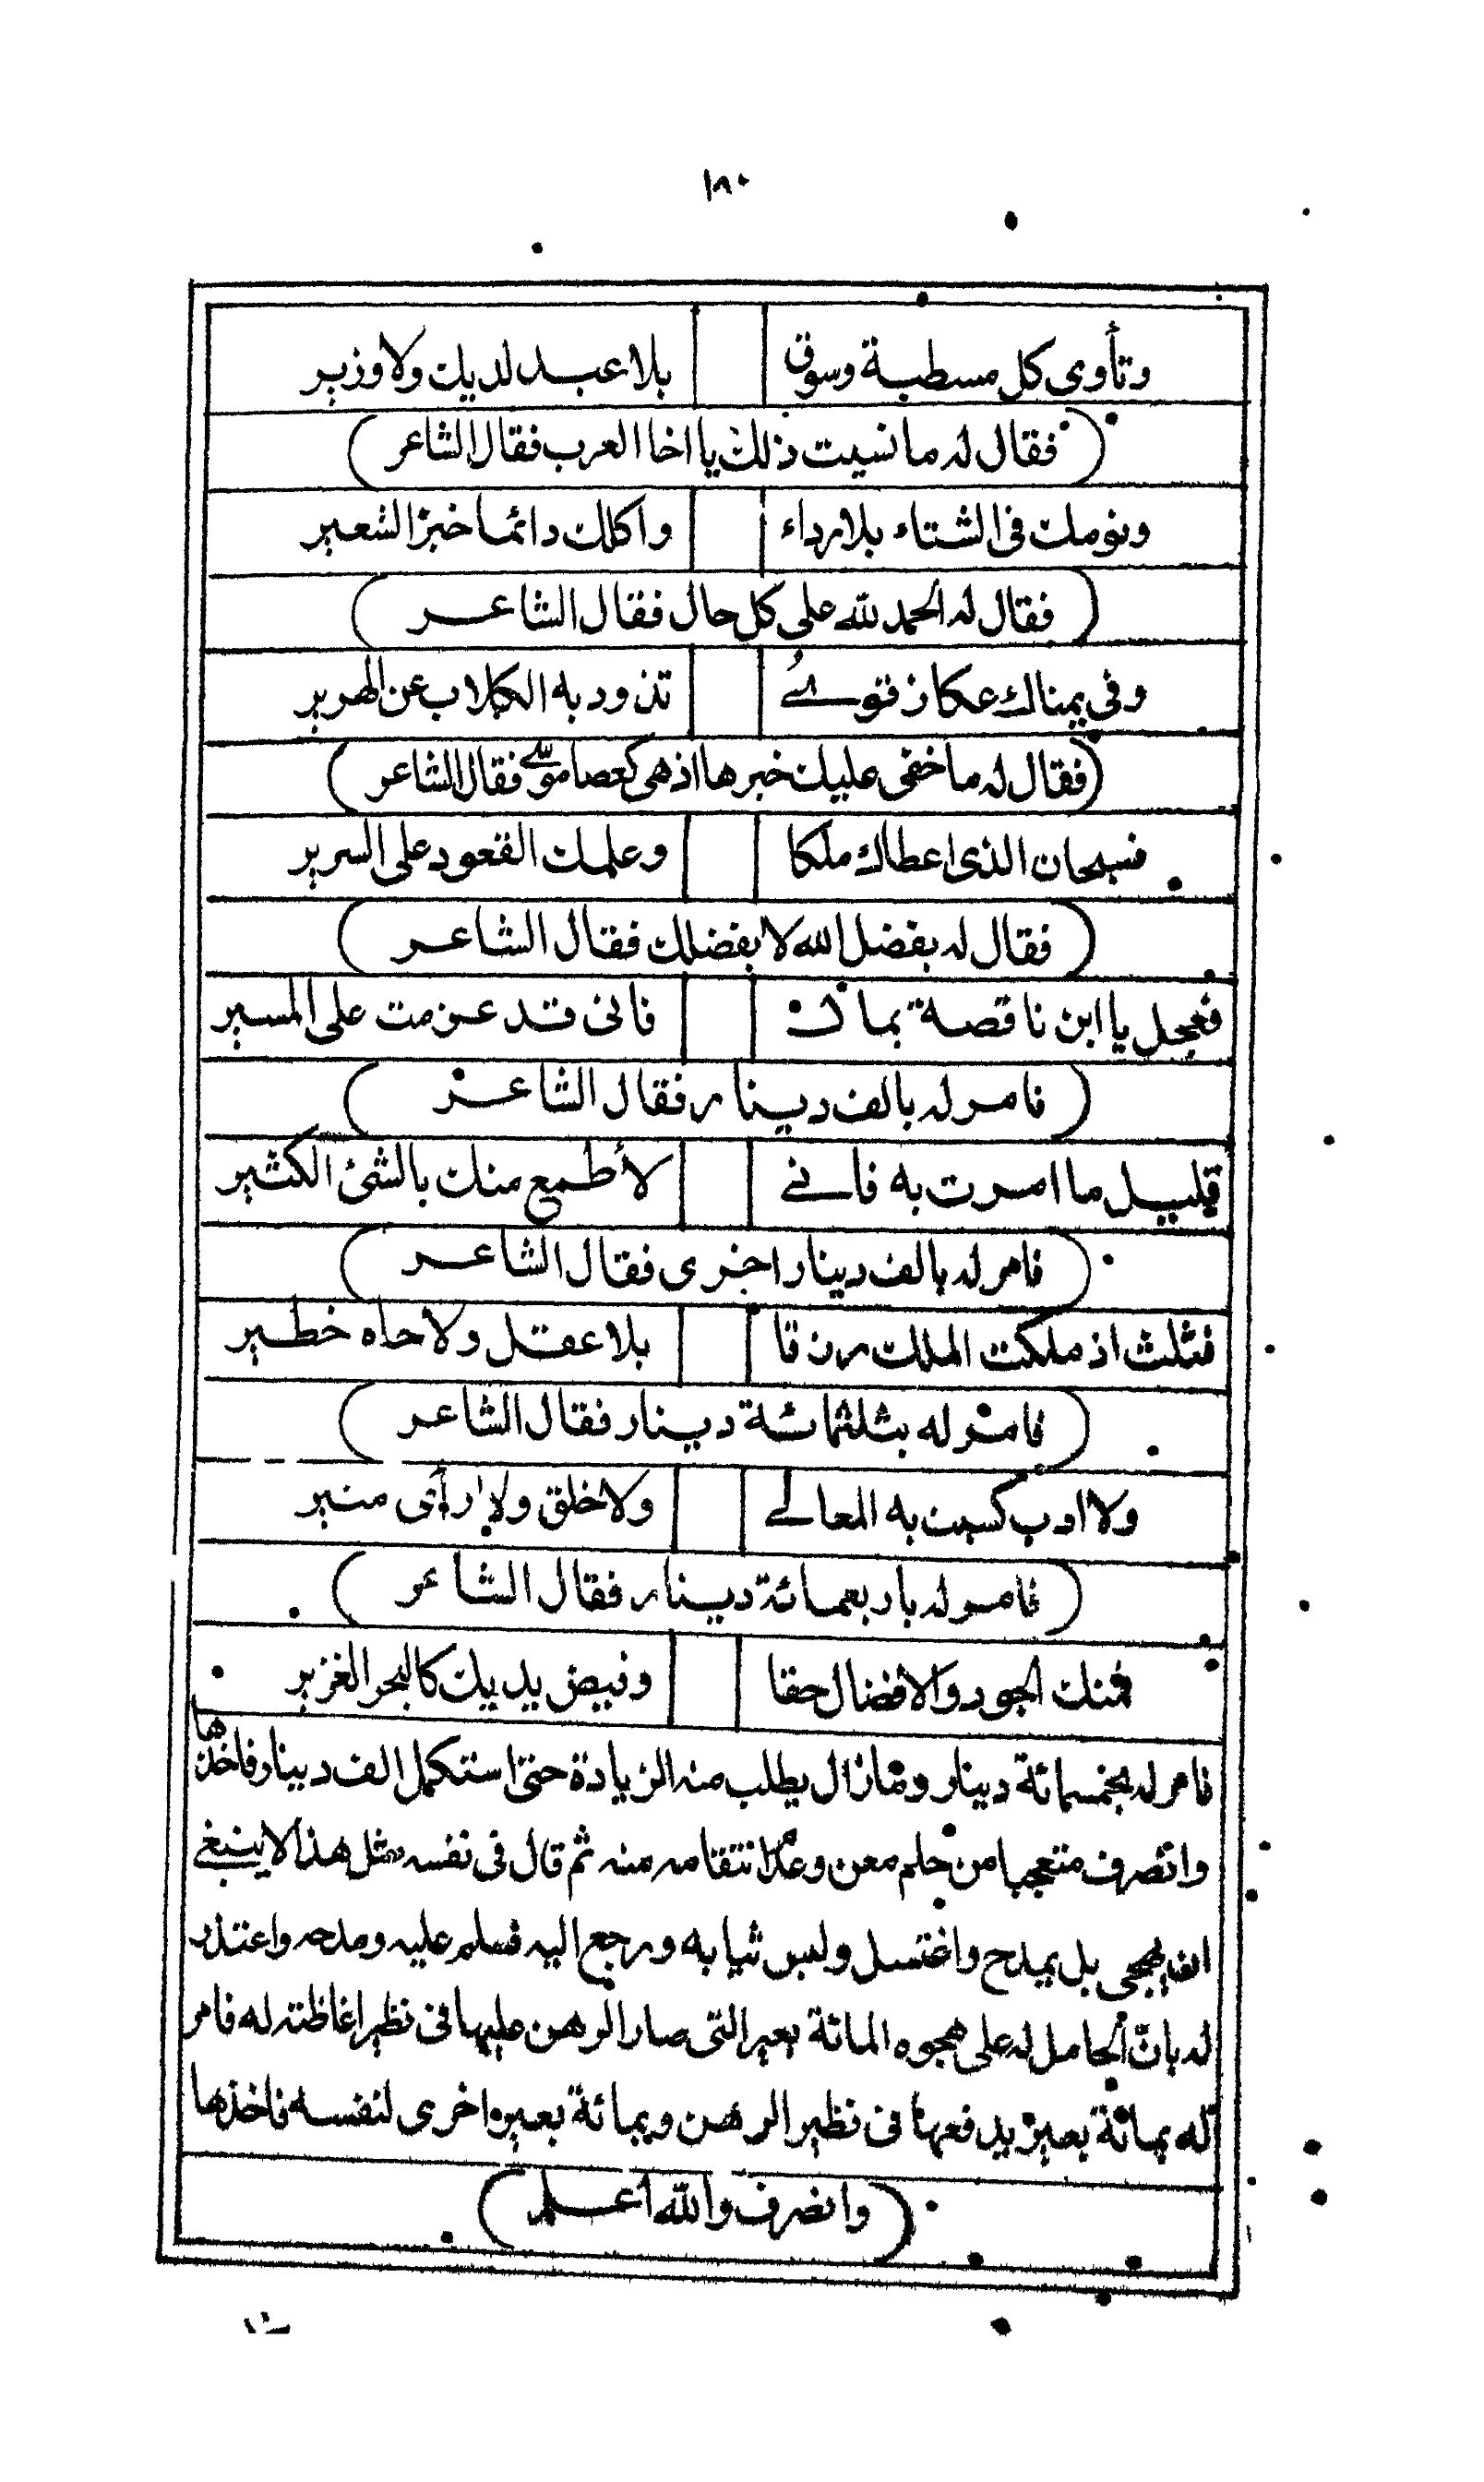 ١٨٠
وتأوى كل مسطبة وسوق بلا عبد لديك ولا وزير
(فقال له ما نسيت ذلك يا اخا العرب فقال الشاعر)
ونومك فى الشتاء بلا رداء واكلك دائما خبز الشعير
(فقال له الحمد لله على كل حال فقال الشاعر)
وفى يمناك عكاز قوى تذود به الكلاب عن الهرير
(فقال له ما خفى عليك خبرها اذ هى كعصا موسى فقال الشاعر)
فسبحان الذى اعطاك ملكا وعلمك القعود على السرير
(فقال له بفضل الله لا بفضلك فقال الشاعر)
فعجل يا ابن ناقصة بمال فانى قد عزمت على المسير
(فامر له بالف دينار فقال الشاعر)
قليل ما امرت به فانى لأطمع منك بالشئ الكثير
(فامر له بالف دينار اخرى فقال الشاعر)
فثلث اذ ملكت الملك رزقا بلا عقل ولا جاه خطير
(فامر له بثلثمائة دينار فقال الشاعر)
ولا ادب كسبت به المعالى ولا خلق ولا رأى منير
(فامر له باربعمائة دينار فقال الشاعر)
فمنك الجود والافضال حقا وفيض يديك كالبحر الغزير
فامر له بخمسمائة دينار وما زال يطلب منه الزيادة حتى استكمل الف دينار فاخذها
وانصرف متعجبا من حلم معن وعدم انتقامه منه ثم قال فى نفسه مثل هذا لا ينبغى
ان يهجى بل يمدح واغتسل ولبس ثيابه ورجع اليه فسلم عليه ومدحه واعتذر
له بانّ الحامل له على هجوه المائة بعير التى صار الرهن عليها فى نظير اغاظته له فامر
له بمائة بعير يدفعها فى نظير الرهن وبمائة بعير اخرى لنفسه فاخذها
(وانصرف والله اعلم)